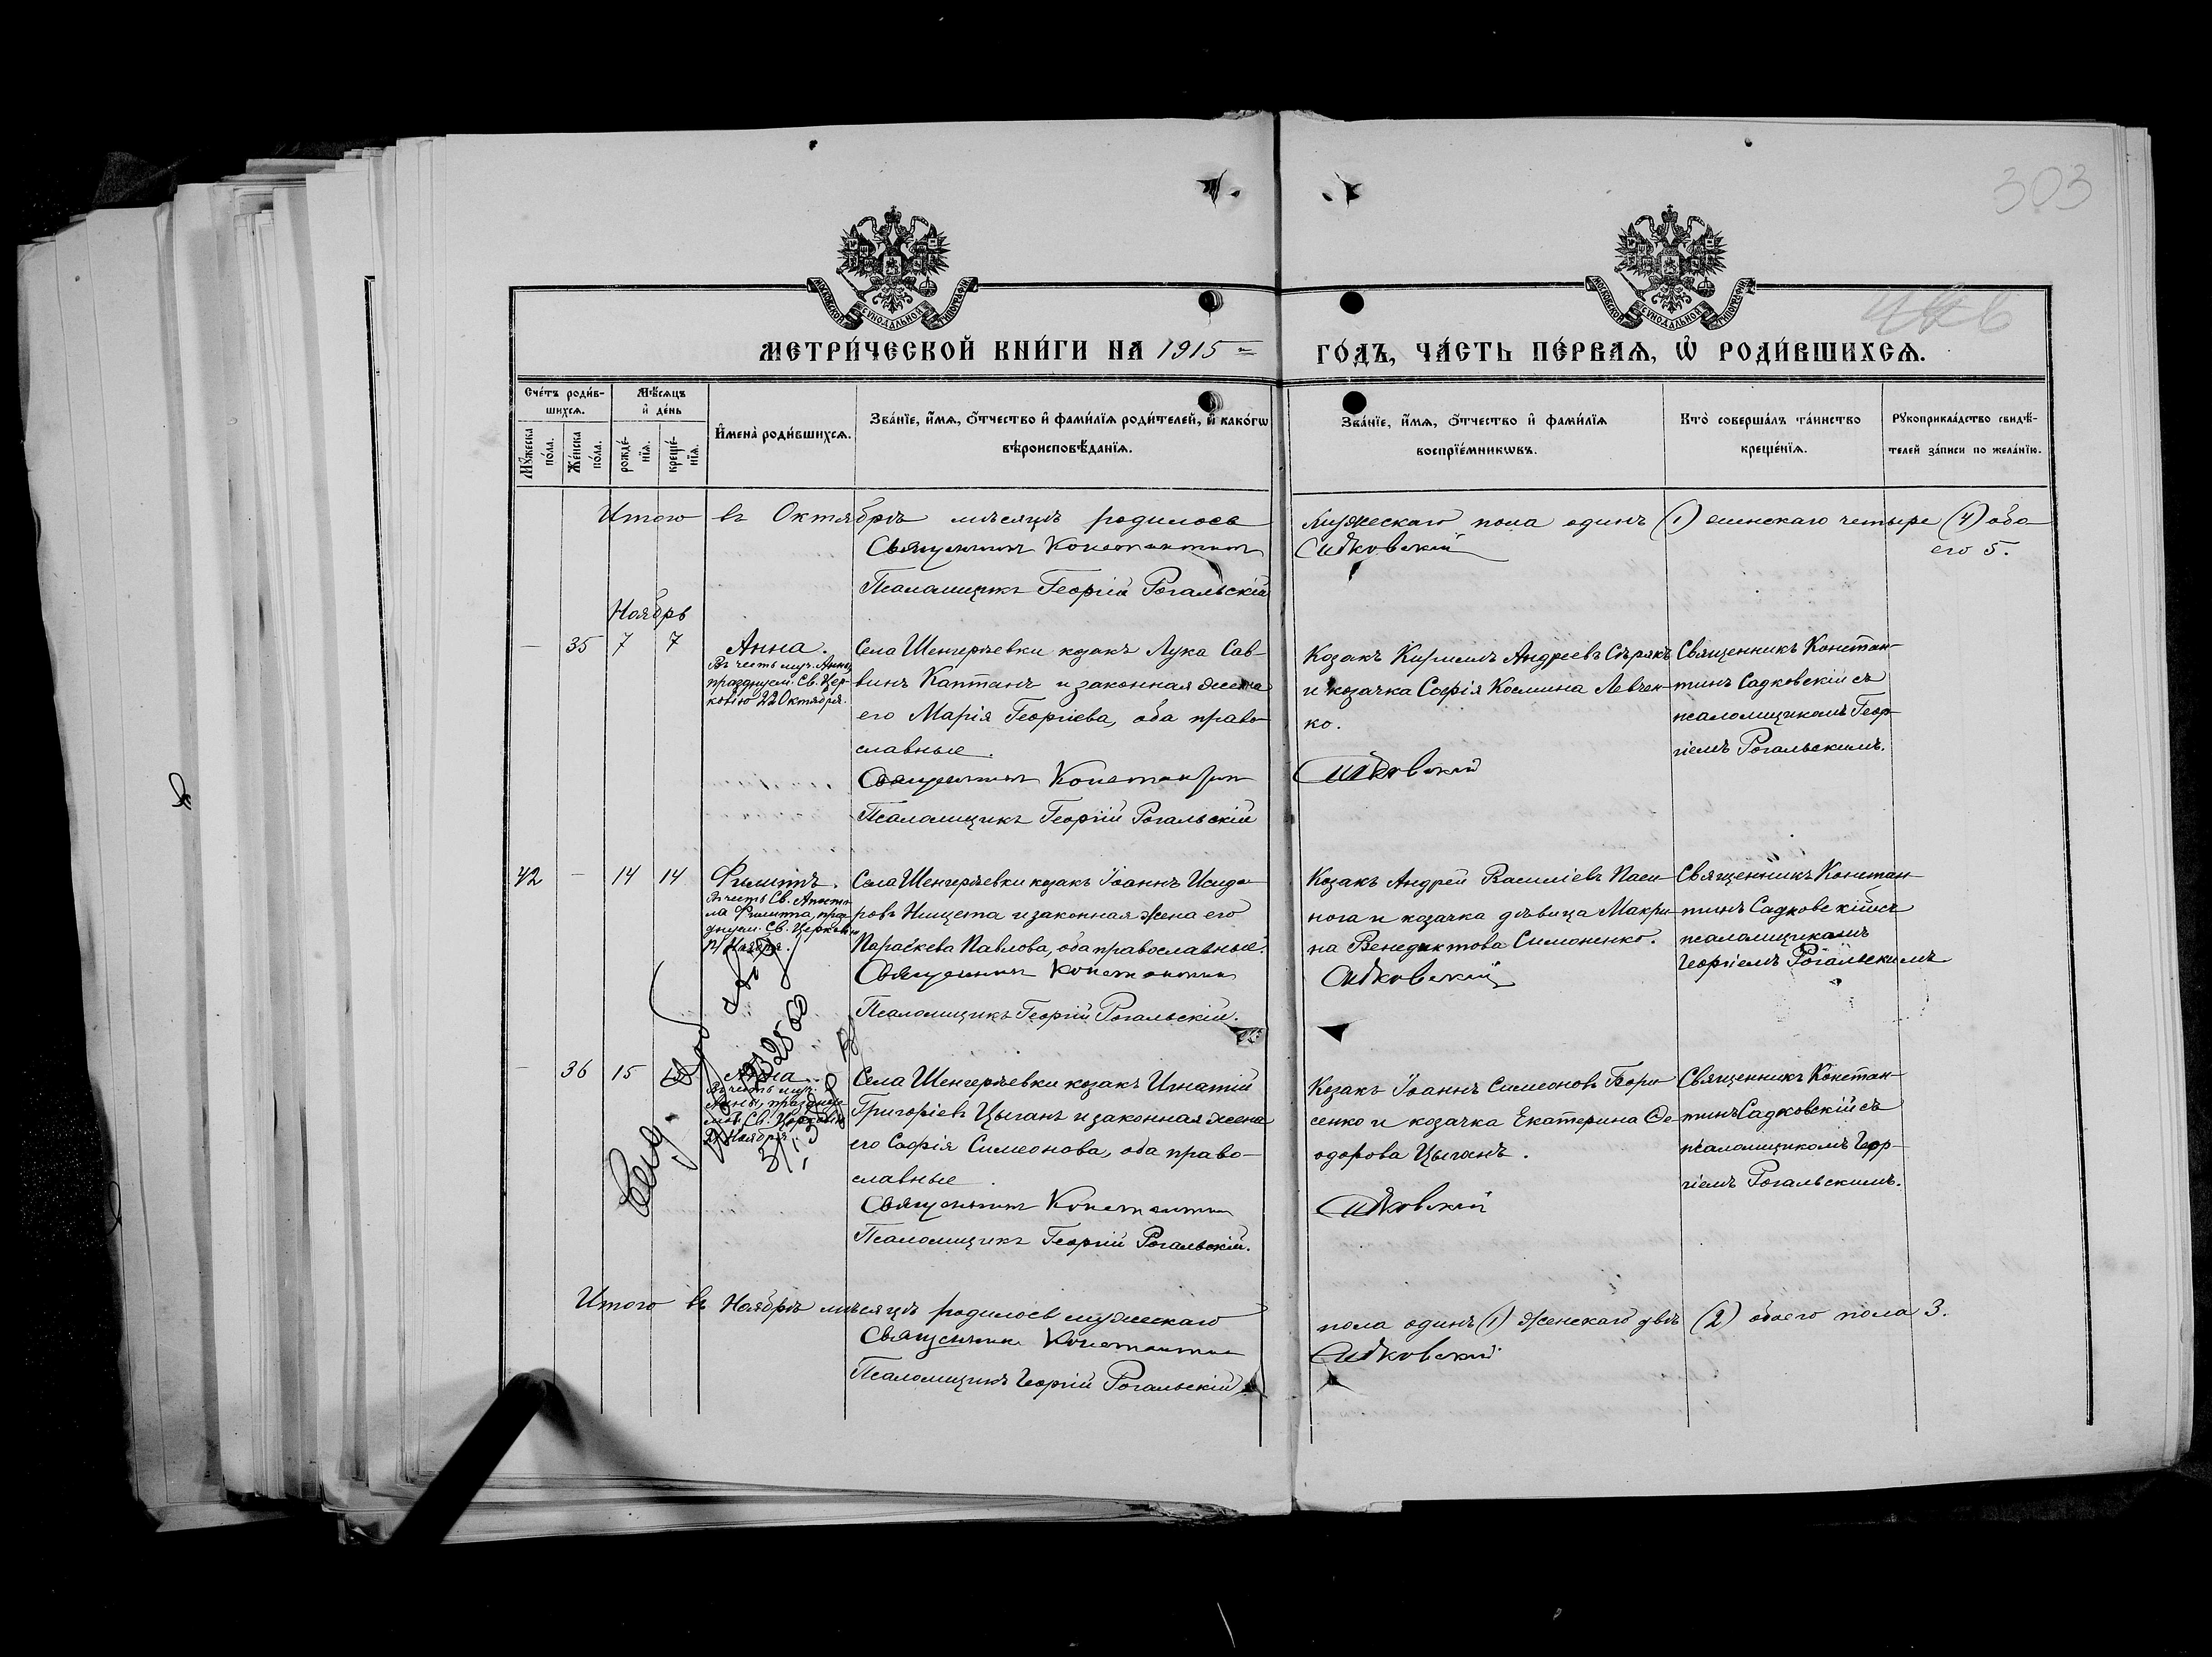 303
МОСКОВСКОЙ СѴНОДАЛЬНОЙ ТИПОГРАФІИ
МОСКОВСКОЙ СѴНОДАЛЬНОЙ ТИПОГРАФІИ
МЕТРИ́ЧЕСКОЙ КНИ́ГИ НА 1915 ГО́ДЪ, ЧА́СТЬ ПЕ́РВАѦ, Ѡ РОДИ́ВШИХСѦ.
Сче́тъ роди́в-
шихсѧ.
Мꙋ́жеска
по́ла.
Же́нска
по́ла.
Мѣ́сѧцъ
и҆ де́нь
рожде́-
нїѧ.
креще́-
нїѧ.
И҆мена̀ роди́вшихсѧ.
Зва́нїе, и҆́мѧ, ѻ҆́тчество и҆ фами́лїѧ роди́телей, и҆ како́гѡ
вѣроисповѣ́данїѧ.
Зва́нїе, и҆́мѧ, ѻ҆́тчество и҆ фами́лїѧ
воспрїе́мникѡвъ.
Кто̀ соверша́лъ та́инство
креще́нїѧ.
Рꙋкоприкла́дство свидѣ́-
телей за́писи по жела́нїю.
Итого въ Октябрѣ мѣсяцѣ родилось мужескаго пола одинъ (1) женскаго четыре (4) обо
его 5.
Священникъ Константинъ Садковскій
Псаломщикъ Георгій Рогальскій
Ноябрь
— 35 7 7
Анна.
Въ честь муч. Анны,
празднуем. Св. Цер-
ковію 22 Октября.
Села Шенгерѣевки козакъ Лука Сав-
винъ Каптанъ и законная жена
его Марія Георгіева, оба право-
славные.
Священникъ Константинъ
Псаломщикъ Георгій Рогальскій
Козакъ Кириллъ Андреевъ Сѣрякъ
и козачка Софія Космина Левчен-
ко.
Садковскій
Священникъ Констан-
тинъ Садковскій съ
псаломщикомъ Геор-
гіемъ Рогальскимъ.
42 — 14 14
Филиппъ.
Въ честь Св. Апосто
ла Филиппа, праз-
днуем. Св. Церковію
14 Ноября.
Села Шенгерѣевки козакъ Іоаннъ Исидо-
ровъ Нищета и законная жена его
Параскева Павлова, оба православные.
Священникъ Константинъ
Псаломщикъ Георгій Рогальскій.
Козакъ Андрей Василіевъ Паси-
нога и козачка дѣвица Макри-
на Венедиктова Симоненко.
Садковскій
Священникъ Констан-
тинъ Садковскій съ
псаломщикомъ
Георгіемъ Рогальскимъ
— 36 15
Анна.
Въ честь муч.
Анны, празднуе-
мой Св. Церковію
Ноября
Села Шенгерѣевки козакъ Игнатій
Григоріевъ Цыганъ и законная жена
его Софія Симеонова, оба право-
славные.
Священникъ Константинъ
Псаломщикъ Георгій Рогальскій.
Козакъ Іоаннъ Симеоновъ Бори-
сенко и козачка Екатерина Ѳе-
одорова Цыганъ.
Садковскій
Священникъ Констан-
тинъ Садковскій съ
псаломщикомъ Геор-
гіемъ Рогальскимъ.
Итого въ Ноябрѣ мѣсяцѣ родилось мужескаго пола одинъ (1) женскаго двѣ (2) обоего пола 3.
Священникъ Константинъ Садковскій
Псаломщикъ Георгій Рогальскій